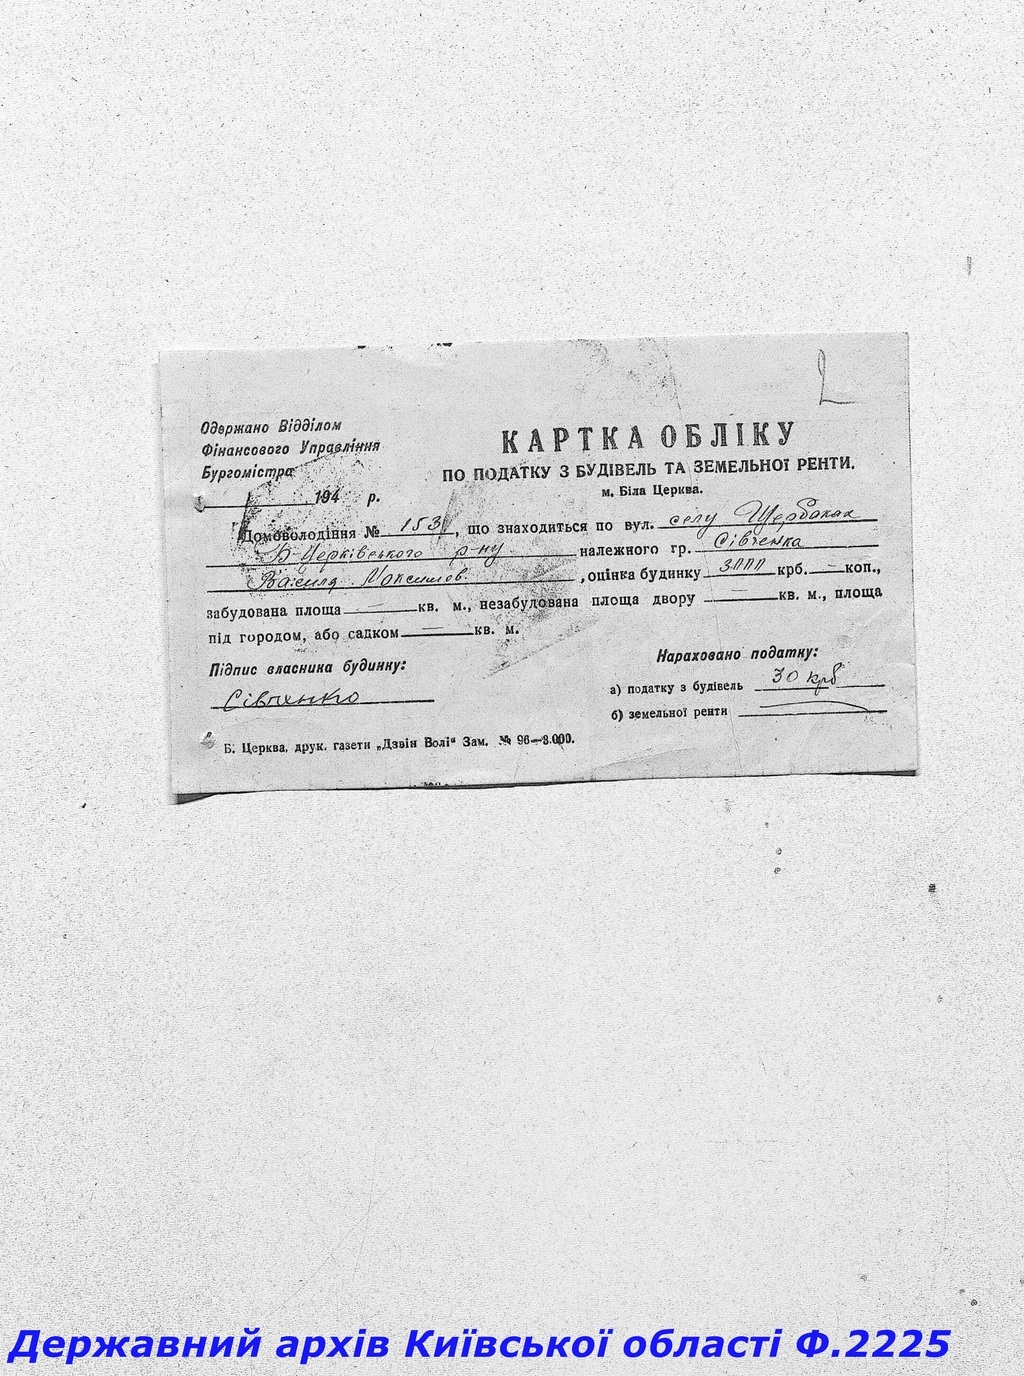 2
Одержано Відділом
Фінансового Управління
Бургомістра
194 р.
КАРТКА ОБЛІКУ
ПО ПОДАТКУ З БУДІВЕЛЬ ТА ЗЕМЕЛЬНОЇ РЕНТИ.
м. Біла Церква.
Домоволодіння № 153, що знаходиться по вул. селу Щербаках
Б Церківського р-ну належного гр. Сівченка
Василя Максимов. , оцінка будинку крб. — коп.,
забудована площа — кв. м., незабудована площа двору — кв. м., площа
під городом, або садком — кв. м.
Підпис власника будинку:
Сівченко
Нараховано податку:
а) податку з будівель 30 крб
б) земельної ренти —
Б. Церква, друк. газети „Дзвін Волі“ Зам. № 96—3.000.
Державний архів Київської області Ф.2225